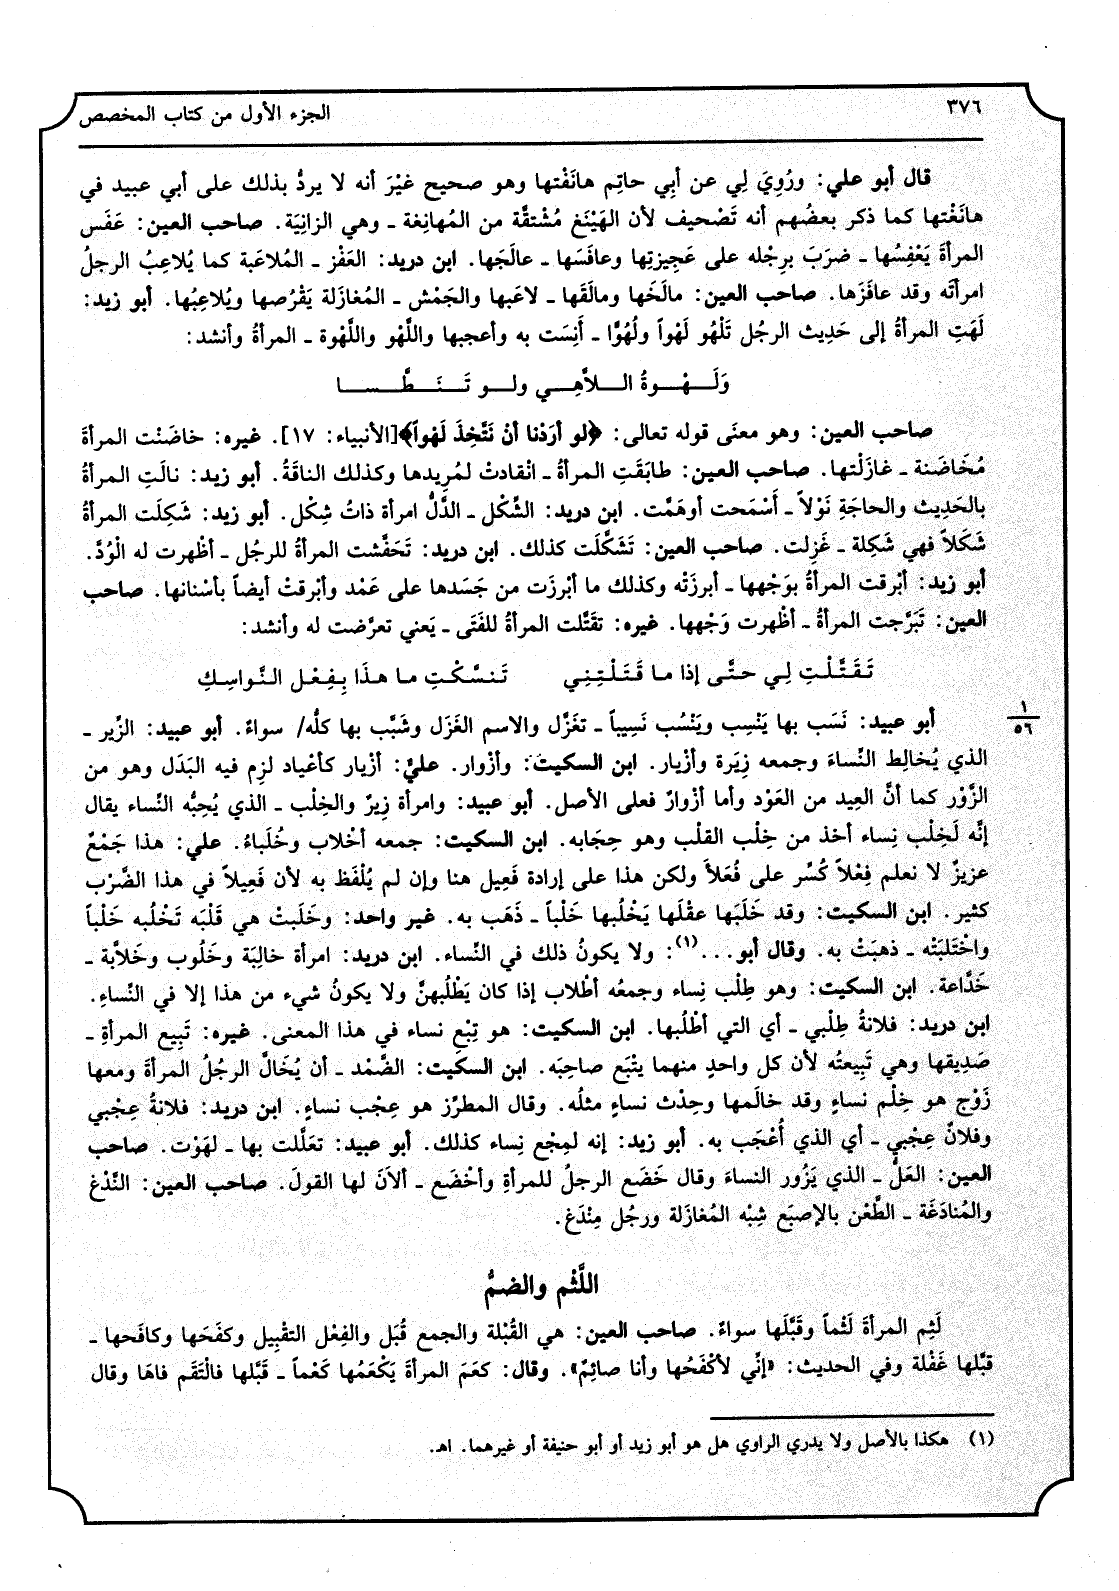 ٣٧٦
الجزء الأول من كتاب المخصص
قال أبو علي: ورُوِيَ لِي عن أبِي حاتِم هانَفْتها وهو صحيح غيْرَ أنه لا يردُّ بذلك على أبي عبيد في
هانَغْتها كما ذكر بعضُهم أنه تَصْحيف لأن الهَيْنَغ مُشْتقَّة من المُهانِغة ـ وهي الزانِيَة. صاحب العين: عَفَس
المرأةَ يَعْفِسُها ـ ضرَبَ برِجْله على عَجِيزتِها وعافَسَها ـ عالَجَها. ابن دريد: العَفْز ـ المُلاعَبة كما يُلاعِبُ الرجلُ
امرأتَه وقد عافَزَها. صاحب العين: مالَخَها ومالَقَها ـ لاعَبها والجَمْش ـ المُغازَلة يَقْرُصها ويُلاعِبُها. أبو زيد:
لَهَتِ المرأةُ إلى حَدِيث الرجُل تَلْهُو لَهْواً ولُهُوًّا ـ أَنِسَت به وأعجبها واللَّهْو واللَّهْوة ـ المرأةُ وأنشد:
وَلَـهْـوَةُ الـلاَّهِـي ولـو تَـنَـطَّـسـا
صاحب العين: وهو معنَى قوله تعالى: ﴿لو أرَدْنا أنْ نَتَّخِذَ لَهْواً﴾[الأنبياء: ١٧]. غيره: خاضَنْت المرأةَ
مُخَاضَنة ـ غازَلْتها. صاحب العين: طابَقَتِ المرأةُ ـ انْقادتْ لمُرِيدها وكذلك الناقَةُ. أبو زيد: نالَتِ المرأةُ
بالحَدِيث والحاجَةِ نَوْلاً ـ أَسْمَحت أوهَمَّت. ابن دريد: الشَّكْل ـ الدَّلُّ امرأة ذاتُ شِكْل. أبو زيد: شَكِلَت المرأةُ
شَكَلاً فهي شَكِلة ـ غَزِلت. صاحب العين: تَشَكَّلَت كذلك. ابن دريد: تَحَفَّشت المرأةُ للرجُل ـ أظْهرت له الْوُدَّ.
أبو زيد: أبْرقت المرأةُ بوَجْهها ـ أبرزَتْه وكذلك ما أبْرزَت من جَسَدها على عَمْد وأبْرقتْ أيضاً بأسْنانها. صاحب
العين: تَبَرَّجت المرأةُ ـ أظْهرت وَجْهها. غيره: تقَتَّلت المرأةُ للفَتَى ـ يَعني تعرَّضت له وأنشد:
تَـقَـتَّلْـتِ لِـي حـتَّـى إذا مـا قَـتَـلْـتِـنِـي تَـنـسَّـكْـتِ مـا هـذَا بِـفِـعْـل الـنَّـواسِـكِ
أبو عبيد: نَسَب بها يَنْسِب ويَنْسُب نَسِيباً ـ تغَزَّل والاسم الغَزَل وشَبَّب بها كلُّه/ سواءٌ. أبو عبيد: الزِّير ـ
١
٥٦
الذي يُخالِط النِّساءَ وجمعه زِيَرة وأزْيار. ابن السكيت: وأزْوار. عليٌّ: أزْيار كأعْياد لزِم فيه البَدَل وهو من
الزَّوْر كما أنَّ العِيد من العَوْد وأما أزْوارٌ فعلى الأصل. أبو عبيد: وامرأة زِيرٌ والخِلْب ـ الذي يُحِبُّه النِّساء يقال
إنَّه لَخِلْب نِساء أخذ من خِلْب القلْب وهو حِجَابه. ابن السكيت: جمعه أخْلاب وخُلَباءُ. علي: هذا جَمْعٌ
عزيزٌ لا نعلم فِعْلاً كُسِّر على فُعَلاً ولكن هذا على إرادة فَعِيل هنا وإن لم يُلْفَظ به لأن فَعِيلاً في هذا الضَّرْب
كثير. ابن السكيت: وقد خَلَبَها عقْلَها يَخْلُبها خَلْباً ـ ذَهَب به. غير واحد: وخَلَبتْ هي قَلْبَه تَخْلُبه خَلْباً
واخْتَلبَتْه ـ ذهبَتْ به. وقال أبو...(١): ولا يكونُ ذلك في النِّساء. ابن دريد: امرأة خالِبَة وخَلُوب وخَلاَّبة ـ
خَدَّاعة. ابن السكيت: وهو طِلْب نِساء وجمعُه أطْلاب إذا كان يَطْلُبهنَّ ولا يكونُ شيء من هذا إلا في النِّساءِ.
ابن دريد: فلانةُ طِلْبي ـ أي التي أطْلُبها. ابن السكيت: هو تِبْع نساء في هذا المعنى. غيره: تَبِيع المرأةِ ـ
صَدِيقها وهي تَبِيعتُه لأن كل واحدٍ منهما يتْبَع صاحِبَه. ابن السكيت: الضَّمْد ـ أن يُخَالَّ الرجُلُ المرأةَ ومعها
زَوْج هو خِلْم نساءٍ وقد خالَمها وحِدْث نساءٍ مثلُه. وقال المطرِّز هو عِجْب نساءٍ. ابن دريد: فلانةُ عِجْبي
وفلانٌ عِجْبي ـ أي الذي أُعْجَب به. أبو زيد: إنه لمِجْع نِساء كذلك. أبو عبيد: تعَلَّلت بها ـ لهَوْت. صاحب
العين: العَلُّ ـ الذي يَزُور النساءَ وقال خَضَع الرجلُ للمرأةِ وأخْضَع ـ ألاَنَ لها القولَ. صاحب العين: النَّدْغ
والمُنادَغَة ـ الطَّعْن بالإصبَع شِبْه المُغازَلة ورجُل مِنْدَغ.
اللَّثْم والضمُّ
لَثِم المرأةَ لَثْماً وقَبَّلَها سواءٌ. صاحب العين: هي القُبْلة والجمع قُبَل والفِعْل التقْبِيل وكَفَحَها وكافَحها ـ
قبَّلها غَفْلة وفي الحديث: «إنِّي لأكْفَحُها وأنا صائِمٌ». وقال: كعَمَ المرأةَ يَكْعَمُها كَعْماً ـ قَبَّلها فالْتَقَم فاهَا وقال
(١) هكذا بالأصل ولا يدري الراوي هل هو أبو زيد أو أبو حنيفة أو غيرهما. اهـ.